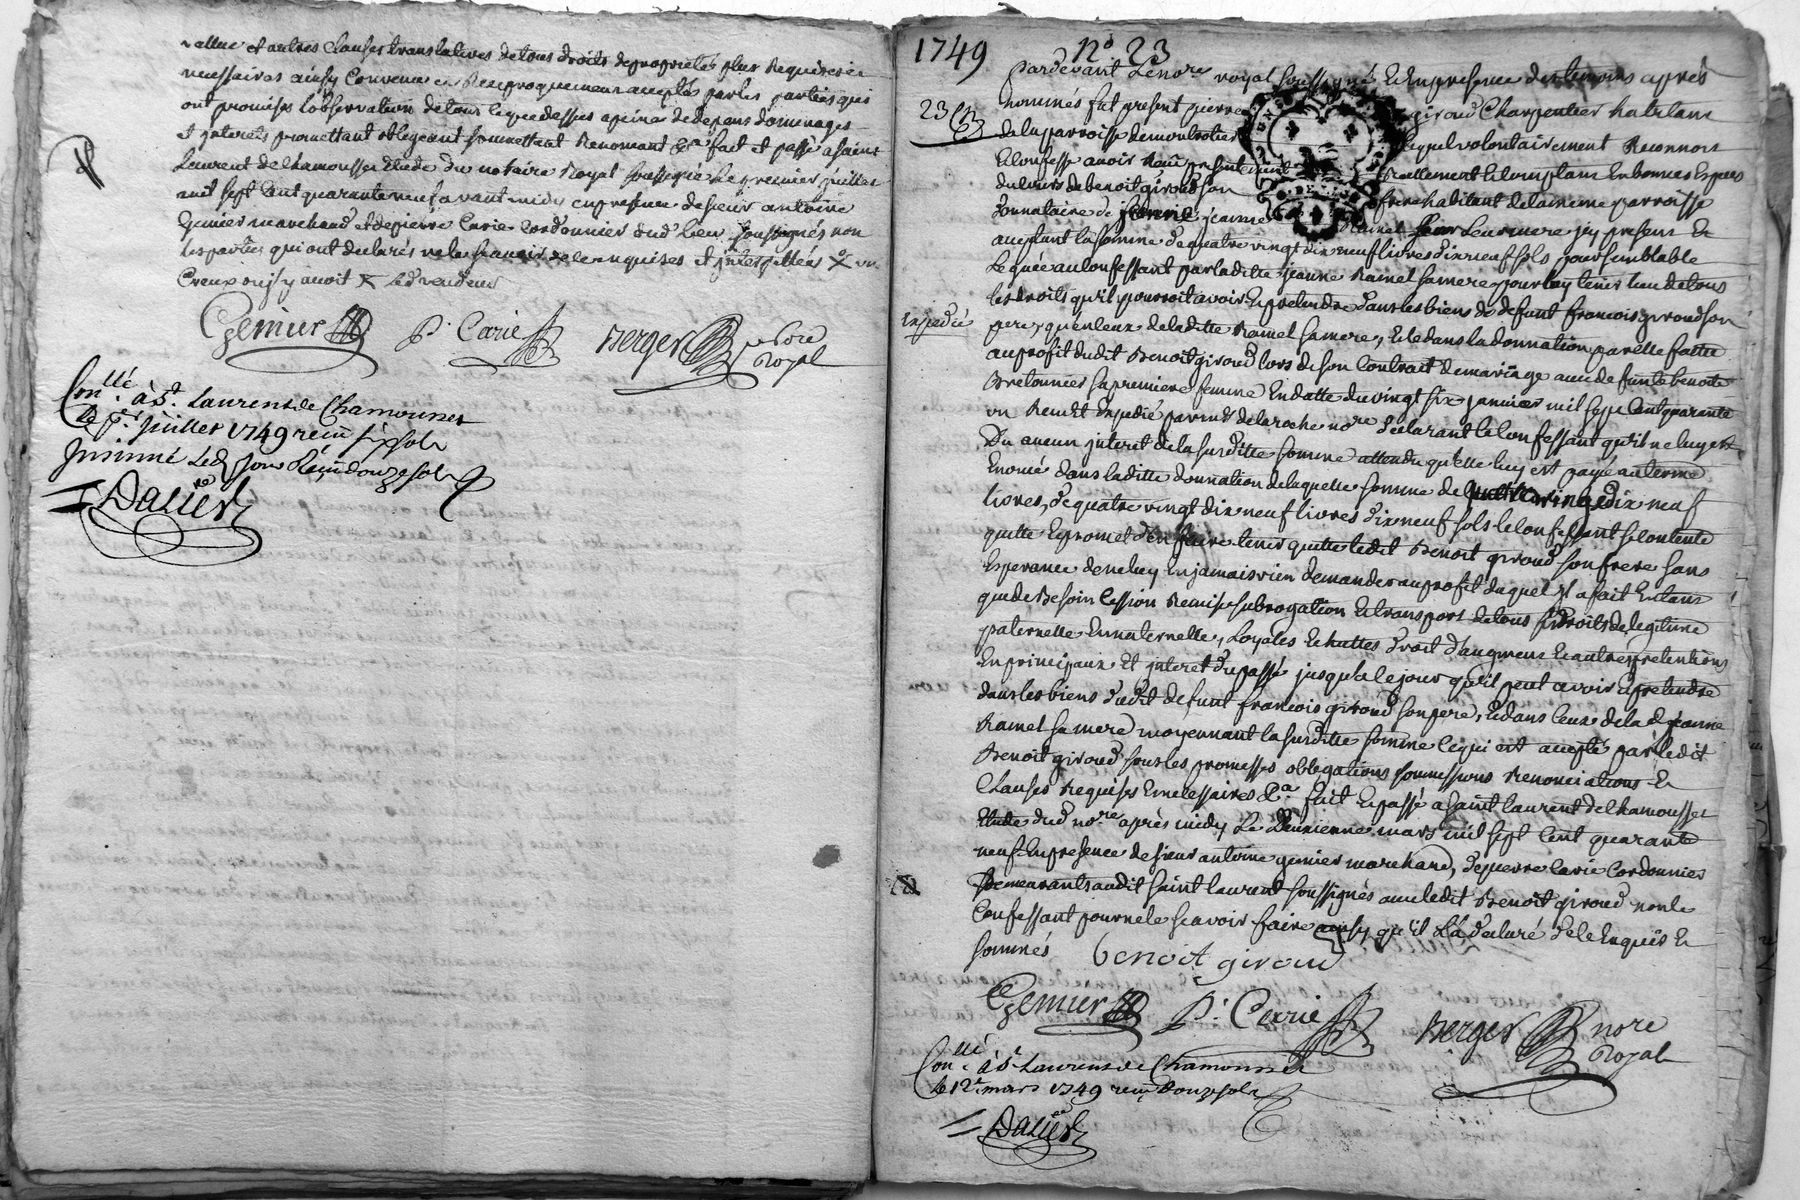 valluë et autres Clauses translatives de tous droits de proprietés plus Requises et
necessaires ainsy Convenu et Reciproquement acceptés par les parties qui
ont promises l'observation de tous ce que dessus a peine de depens dommages
et jnterets promettant obligeant soumettant Renonçant &a fait et passé a saint
Laurent de Chamousset Etude du notaire Royal soussigné le premier juillet
mil sept Cent quarante neuf avant midy en presence de sieur antoine
Gemier marchand et de pierre Carie Cordonnier dud. lieu soussignés non
les parties qui ont declarés ne le sçavoir de ce enquises et jnterpellées
led. vendeur
Gemier P. Carie Berger nore
Royal
Conllé à St. Laurent de Chamousset
le per. Juillet 1749 reçu six sols
Jnsinué led. jour Reçu douze sols
Dalier
1749 No 23
pardevant Le nore royal soussigné Et En presence des temoins aprés
23 nommés fut present pierre giroud Charpentier habitant
de la parroisse de montrotier lequel volontairement Reconnoit
et Confesse avoir Receu presentement Reellement Et Comptant En bonnes Especes
du cours de benoit giroud son frere habitant de la meme parroisse
donnataire de jeanne Ramel Leur mere jcy present Et
acceptant la somme de quatre vingt dix neuf livres dix neuf sols pour semblable
Leguée au Confessant par laditte jeanne Ramel sa mere pour luy tenir lieu de tous
les droits qu'il pourroit avoir Et pretendre dans les biens de defunt francois giroud son
Expedié pere, qu'en Ceux de laditte Ramel sa mere, Et Ce dans la donnation par elle faitte
au profit dudit Benoit giroud lors de son Contrat de mariage avec defunte benoite
Bretonnier sa premiere femme En datte du vingt six janvier mil sept Cent quarante
un Receu Et Expedié par me de la roche nore declarant le Confessant qu'il ne luy est
Du aucun jnteret de la susditte somme attendu qu'elle luy est payé au terme
Enoncé dans laditte donnation de laquelle somme de quatre vingt dix neuf
livres, de quatre vingt dix neuf livres dix neuf sols le Confessant se Contente
quitte Et promet d'en faire tenir quitte ledit Benoit giroud son frere sans
Esperance de ne luy En jamais rien demander au profit duquel jl a fait En tant
que de Besoin Cession Remise subrogation Et transport de tous ses droits de legitime
paternelle Et maternelle, Loyales Echuttes droit d'augment Et autres pretentions
En principaux Et jnteret du passé jusqu'a Ce jour qu'il peut avoir a pretendre
dans les biens dudit defunt francois giroud son pere, Et dans Ceux de lad. jeanne
Ramel sa mere moyennant la susditte somme Ce qui est accepté par ledit
Benoit giroud sous les promesses obligations soumissions Renonciations Et
Clauses Requises Et necessaires &a. fait Et passé a saint laurent de Chamousset
Etude dud. nore après midy Le Deuxieme mars mil sept Cent quarante
neuf En presence de sieur antoine gemier marchand, de pierre Carie Cordonnier
Demeurants audit saint laurent soussignés avec ledit Benoit giroud non le
Confessant pour ne le sçavoir faire ainsy qu'il l'a declaré de Ce Enquis Et
sommés benoit giroud
Gemier P. Carie Berger nore
Royal
Conllé à St. Laurent de Chamousset
le 12e mars 1749 reçu douze sols
Dalier